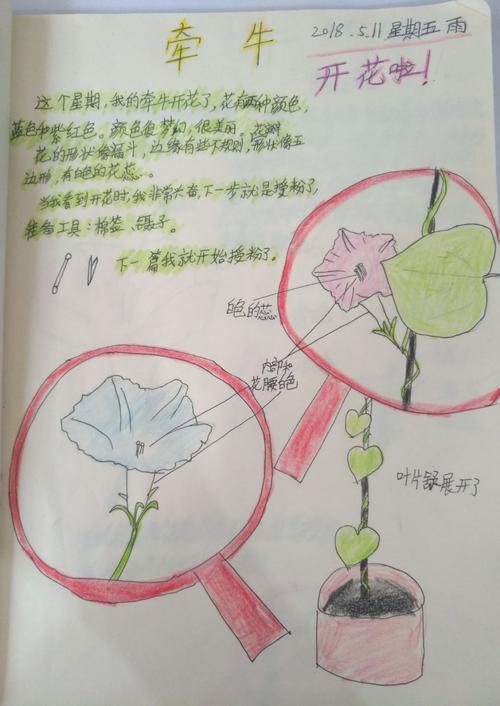 牵牛
2018.5.11 星期五 雨
开花啦!
这个星期,我的牵牛开花了,花有两种颜色,
蓝色和紫红色。颜色很梦幻,很美丽。花瓣
花的形状像漏斗,边缘有些不规则,形状像五
边形,有白色的花蕊。
当我看到开花时,我非常兴奋,下一步就是授粉了,
准备工具:棉签、镊子。
下一篇我就开始授粉了。
白色的蕊
内部和
花腰白色
叶片舒展开了